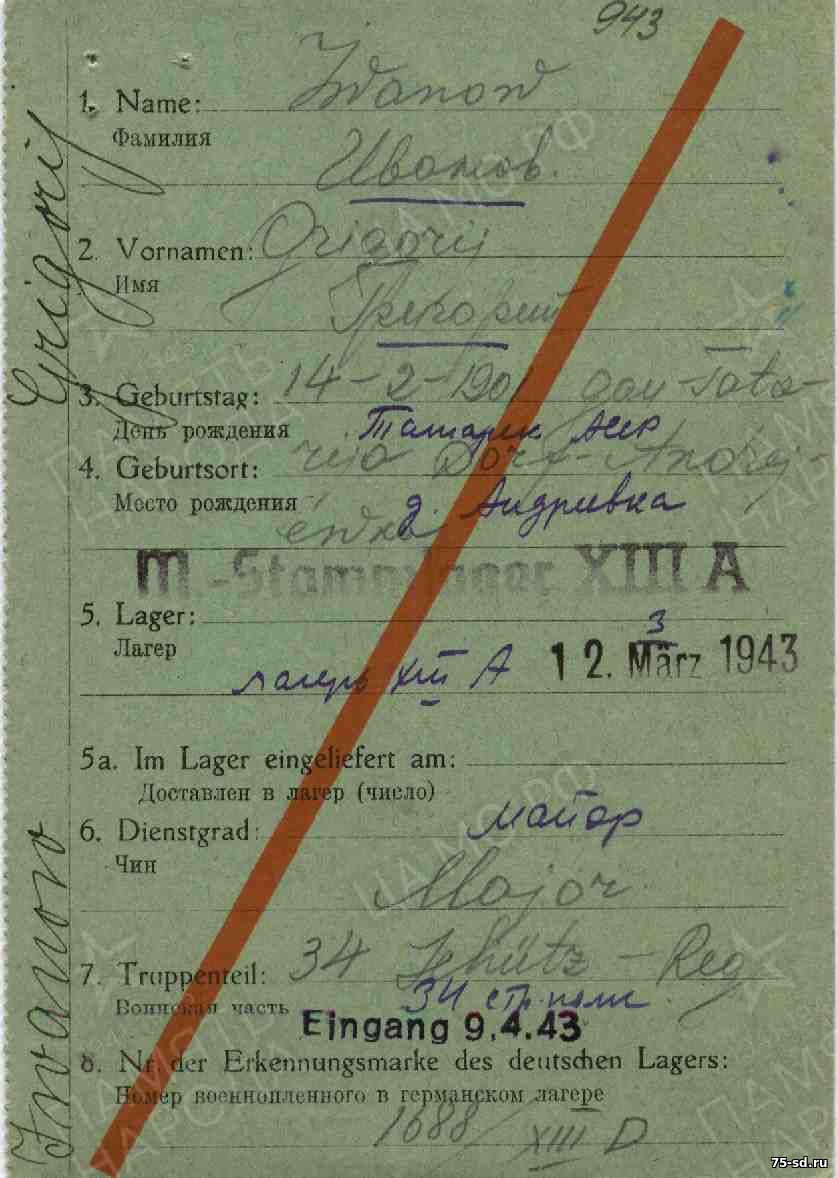 943
1. Name: Iwanow
Фамилия
Иванов.
2. Vornamen: Grigorij
Имя
Григорий
3. Geburtstag: 14-2-1901 gau-Tata-
День рождения Татарск АССР
4. Geburtsort: Dorf-Andrej-
Место рождения д. Андриевка
ewka
M.-Stammlager XIII A
5. Lager:
3
Лагер
лагерь XIII А 12. März 1943
5a. Im Lager eingeliefert am:
Доставлен в лагер (число)
6. Dienstgrad: майор
Чин
Major
7. Truppenteil: 34 Schütz-Reg
Воинская часть 34 стр. полк
Eingang 9.4.43
8. Nr. der Erkennungsmarke des deutschen Lagers:
Номер военнопленного в германском лагере
1688/ XIII D
Iwanow Grigorij
ЦАМО.РФ
ПАМЯТЬ
НАРОДА
75-sd.ru